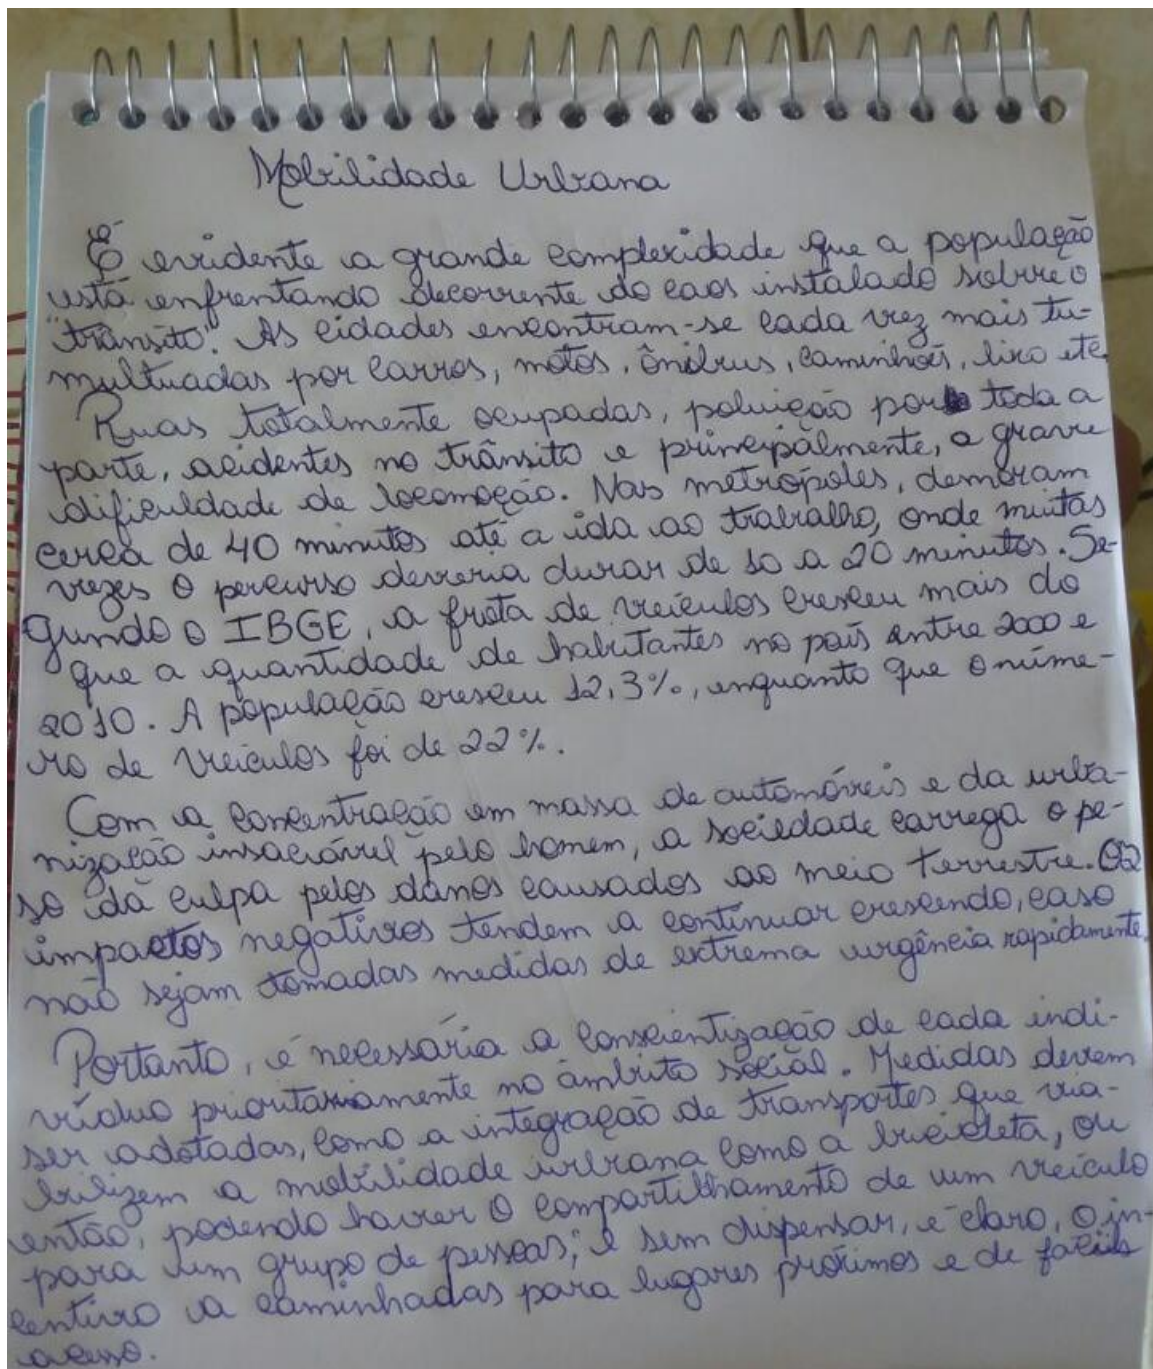 Mobilidade Urbana
É evidente a grande complexidade que a população
está enfrentando decorrente do caos instalado sobre o
"trânsito". As cidades encontram-se cada vez mais tu-
multuadas por carros, motos, ônibus, caminhões, lixo etc.
Ruas totalmente ocupadas, poluição por toda a
parte, acidentes no trânsito e principalmente, a grave
dificuldade de locomoção. Nas metrópoles, demoram
cerca de 40 minutos até a ida ao trabalho, onde muitas
vezes o percurso deveria durar de 10 a 20 minutos. Se-
gundo o IBGE, a frota de veículos cresceu mais do
que a quantidade de habitantes no país entre 2000 e
2010. A população cresceu 12,3%, enquanto que o núme-
ro de veículos foi de 22%.
Com a concentração em massa de automóveis e da urba-
nização insaciável pelo homem, a sociedade carrega o pe-
so da culpa pelos danos causados ao meio terrestre. Os
impactos negativos tendem a continuar crescendo, caso
não sejam tomadas medidas de extrema urgência rapidamente.
Portanto, é necessária a conscientização de cada indi-
víduo prioritariamente no âmbito social. Medidas devem
ser adotadas, como a integração de transportes que via-
bilizem a mobilidade urbana como a bicicleta, ou
então, podendo haver o compartilhamento de um veículo
para um grupo de pessoas; e sem dispensar, é claro, o in-
centivo a caminhadas para lugares próximos e de fáceis
acesso.